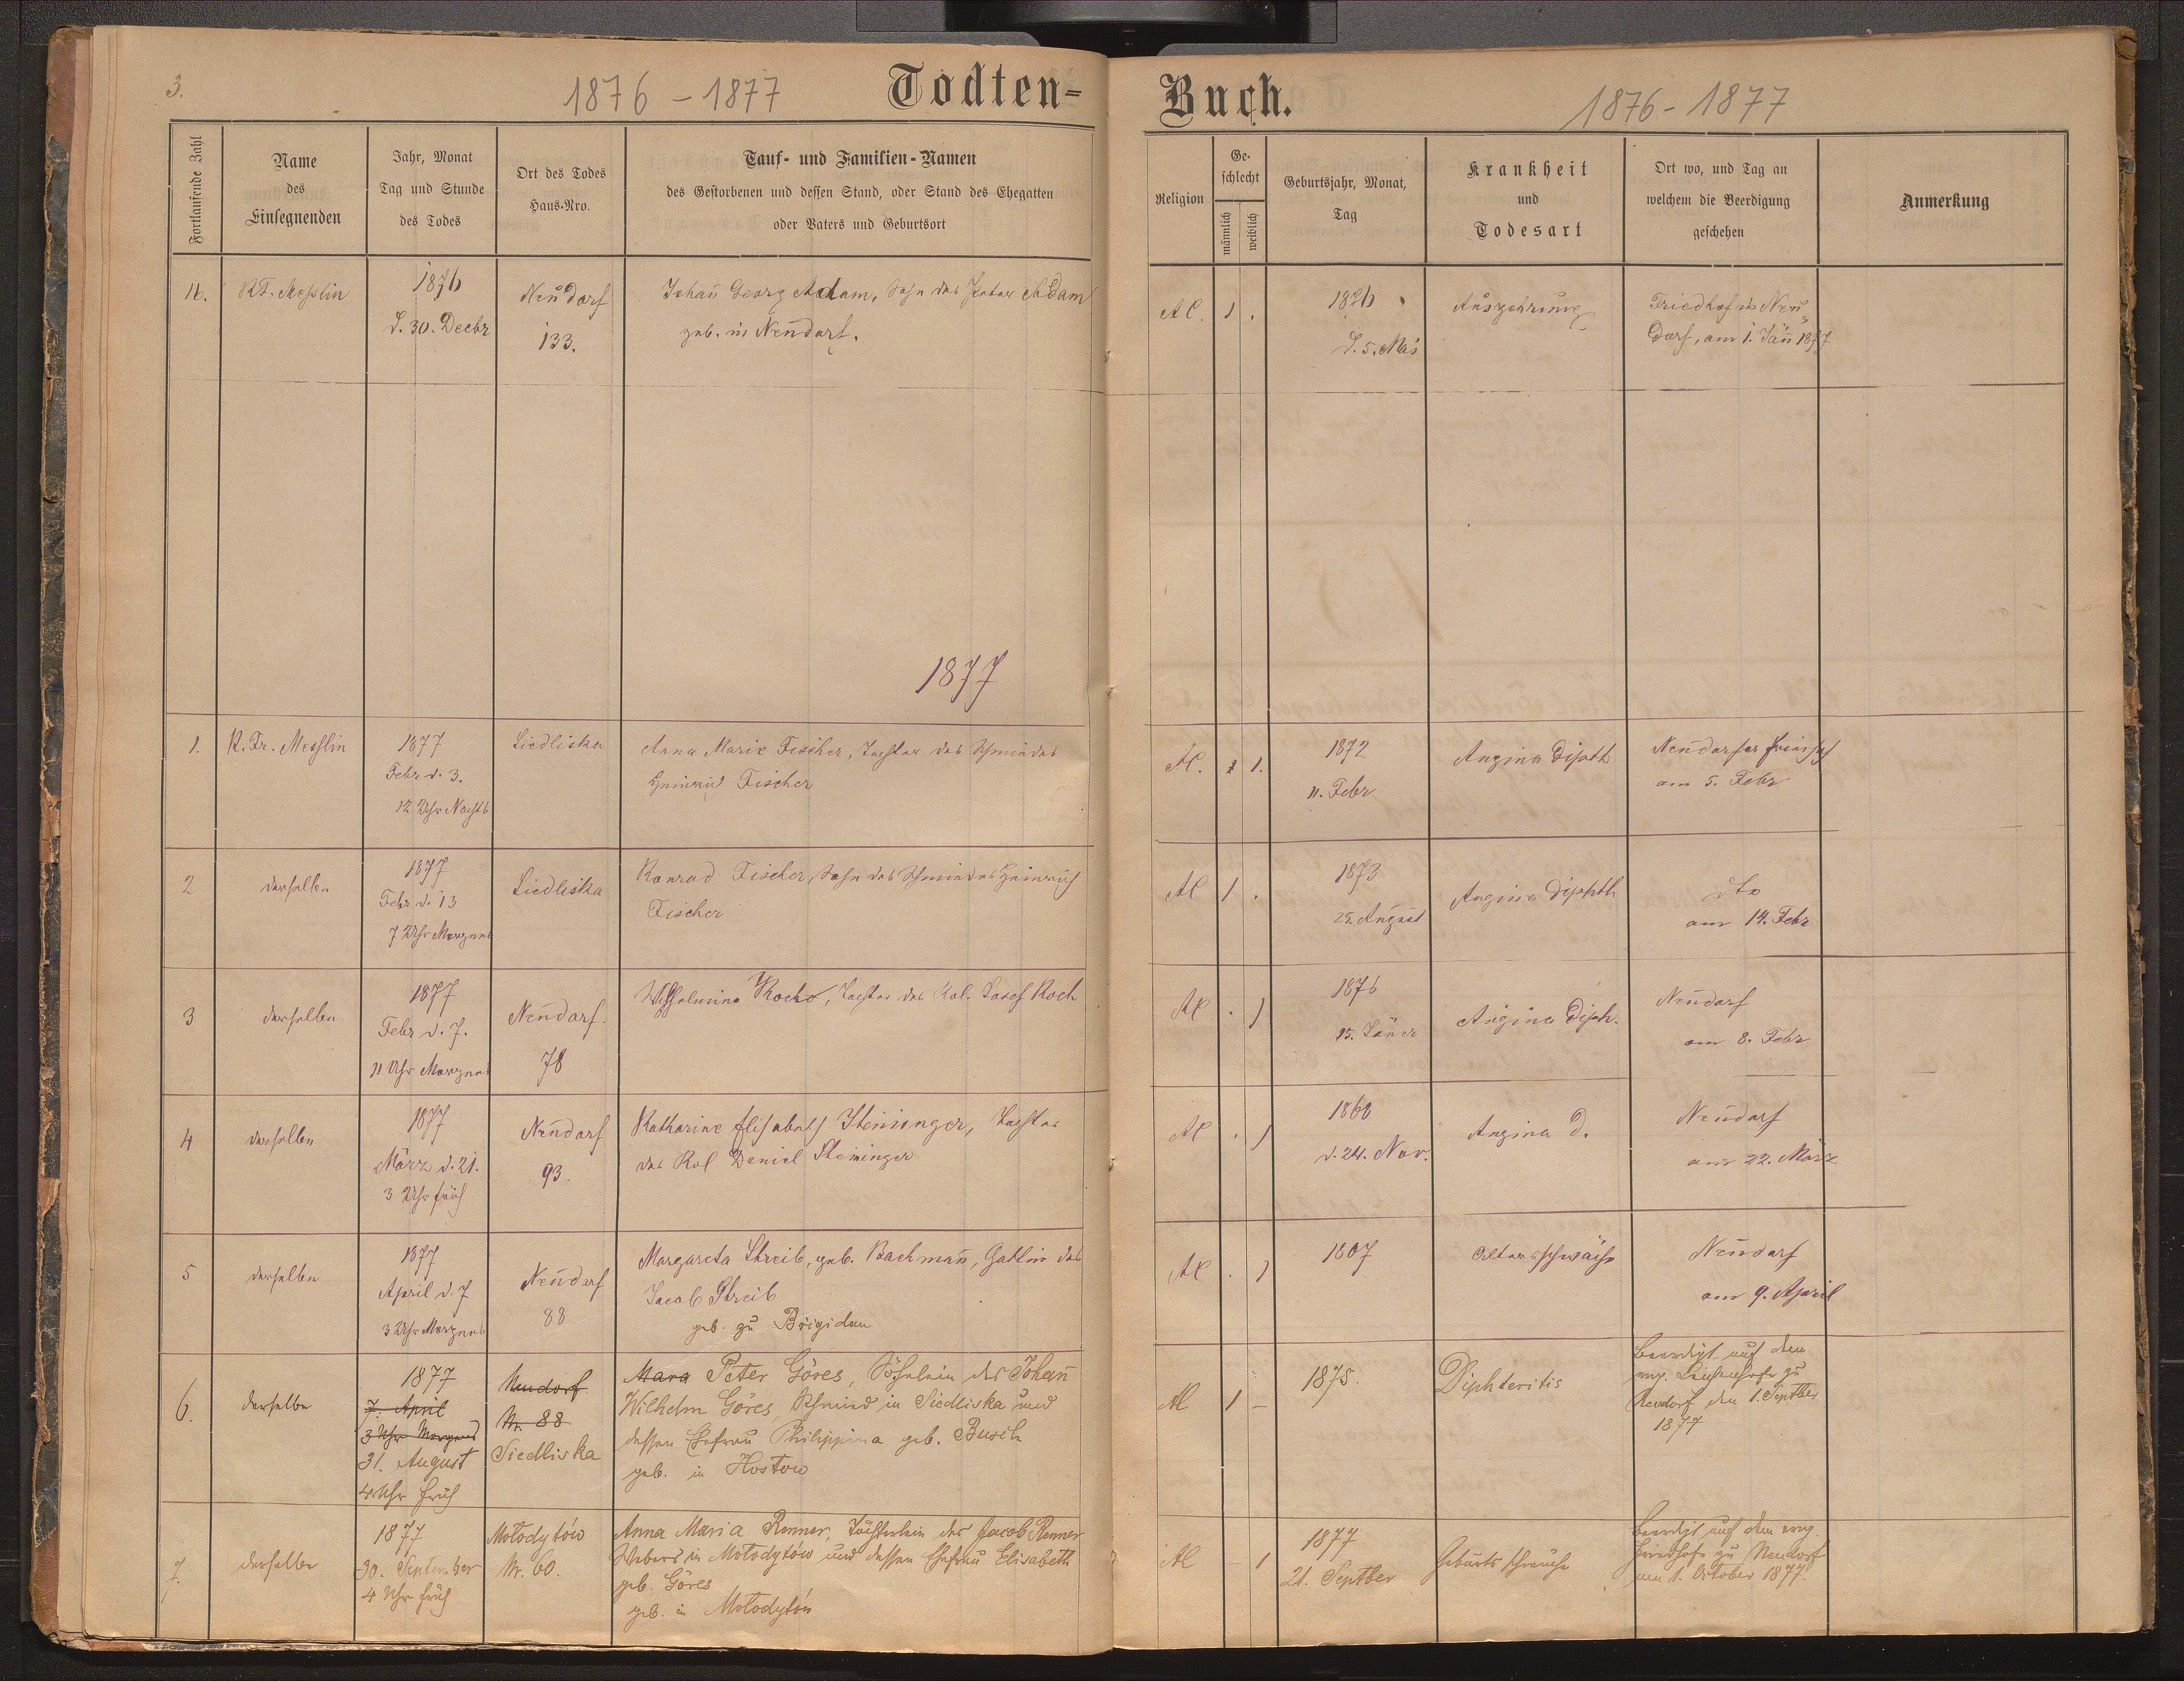 3.
1876 - 1877
Todten-
Buch.
1876 - 1877
Fortlaufende Zahl
Name
des
Einsegnenden
Jahr, Monat
Tag und Stunde
des Todes
Ort des Todes
Haus-Nro.
Tauf- und Familien-Namen
des Gestorbenen und dessen Stand, oder Stand des Ehegatten
oder Vaters und Geburtsort
Religion
Ge-
schlecht
männlich
weiblich
Geburtsjahr, Monat,
Tag
Krankheit
und
Todesart
Ort wo, und Tag an
welchem die Beerdigung
geschehen
Anmerkung
16.
Messlin
1876
d. 30. Decbr
Neudorf
133.
Johan̄ Georg Adam, Sohn des Peter Adam
geb. in Neudorf.
AC.
1
.
1876
d. 5. Mai
Auszehrung
Friedhof in Neu-
dorf, am 1. Jän̄ 1877
1877
1.
R. Fr. Messlin
1877
Febr d. 3.
12 Uhr Nachts
Siedliska
Anna Marie Fischer, Tochter des Schmiedes
Heinrich Fischer
AC.
1.
1872
11. Febr
Angina Dipth
Neudorfer Friedhof
am 5. Febr
2
derselbe
1877
Febr d. 13
7 Uhr Morgens
Siedliska
Konrad Fischer, Sohn des Schmiedes Heinrich
Fischer
AC
1
.
1873
25. August
Angina Diphth
dto
am 14. Febr
3
derselbe
1877
Febr d. 7.
11 Uhr Morgens
Neudorf.
78
Wilhelmine Koch, Tochter des Kol. Josef Koch
AC
.
1
1876
15. Jäner
Angina Diph.
Neudorf
am 8. Febr
4
derselbe
1877
März d. 21.
3 Uhr früh
Neudorf
93.
Katharine Elisabeth Steininger, Tochter
des Kol Daniel Steininger
AC
.
1
1868
d. 24. Nov.
Angina D.
Neudorf
am 22. März
5
derselbe
1877
April d. 7
3 Uhr Morgens
Neudorf
88
Margareta Streib, geb. Bachman̄, Gattin des
Jacob Streib
geb. zu Brigidau
AC
.
1
1807
Altersschwäche
Neudorf
am 9. April
6.
derselbe
1877
7. April
3 Uhr Morgens
31. August
4 Uhr früh
Neudorf
Nr. 88
Siedliska
Mara Peter Göres, Söhnlein des Johan̄
Wilhelm Göres, Schmied in Siedliska und
dessen Ehefrau Philippina geb. Busch
geb. in Hostow
AC
1
-
1875.
Diphteritis
Beerdigt auf dem
evg. Leichenhofe zu
Neudorf den 1. Septber
1877
7.
derselbe
1877
30. September
4 Uhr früh
Mołodytów
Nr. 60.
Anna Maria Renner, Töchterlein des Jacob Renner
Webers in Mołodytów und dessen Ehefrau Elisabeth
geb. Göres
geb. in Mołodytów
AC
-
1
1877
21. Septber
Beerdigt auf dem evg.
Friedhofe zu Neudorf
am 1. October 1877.